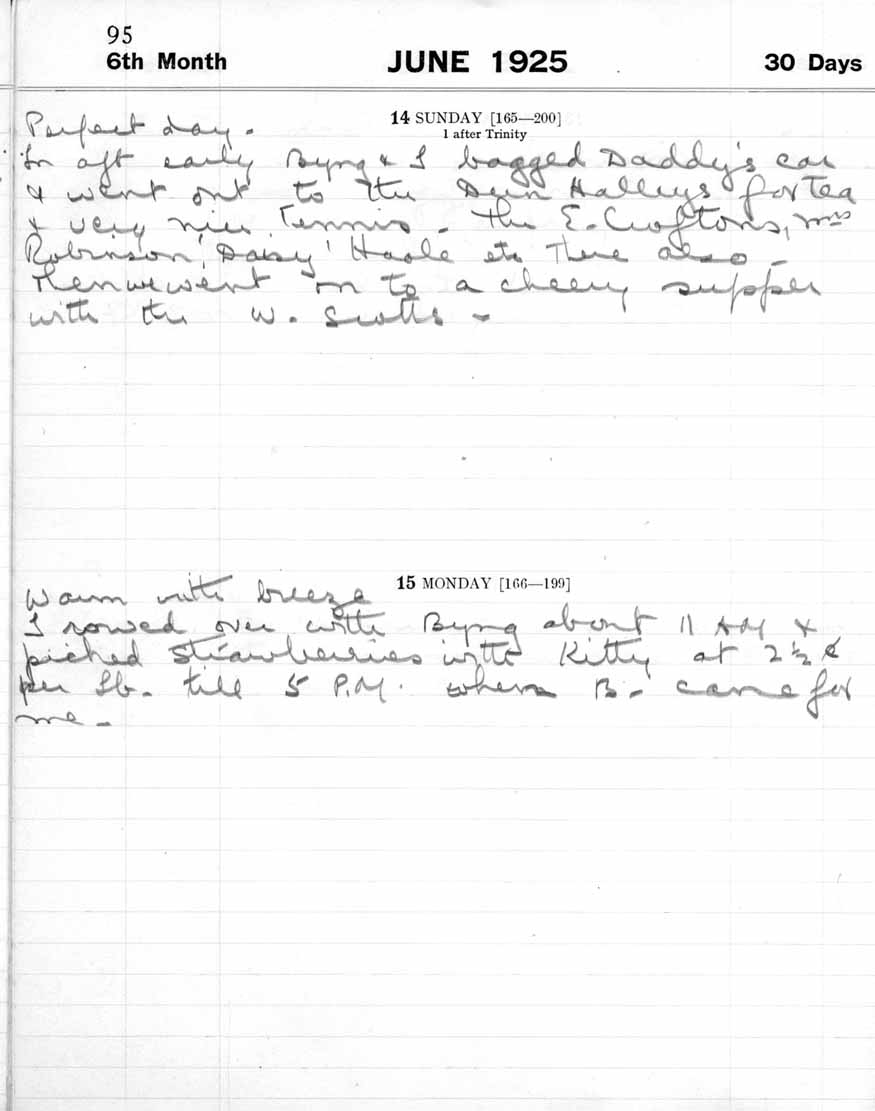 95
6th Month JUNE 1925 30 Days
14 SUNDAY [165—200]
1 after Trinity
Perfect day.
In aft early Byng & I bagged Daddy's car
& went out to the Halleys for Tea
& very nice Tennis - The E. Croftons, Mrs
Robinson, 'Daisy' etc There also -
Then we went on to a cheery supper
with the W. Scotts -
15 MONDAY [166—199]
Warm with breeze
I rowed over with Byng about 11 AM &
picked strawberries with Kitty at 2½ ¢
per lb. till 5 P.M. when B. came for
me -